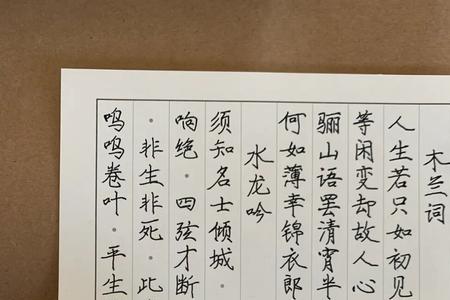 木兰词
人生若只如初见
等闲变却故人心
骊山语罢清宵半
何如薄幸锦衣郎
水龙吟
须知名士倾城·
响绝·四弦才断
·非生非死·此
呜呜卷叶·平生